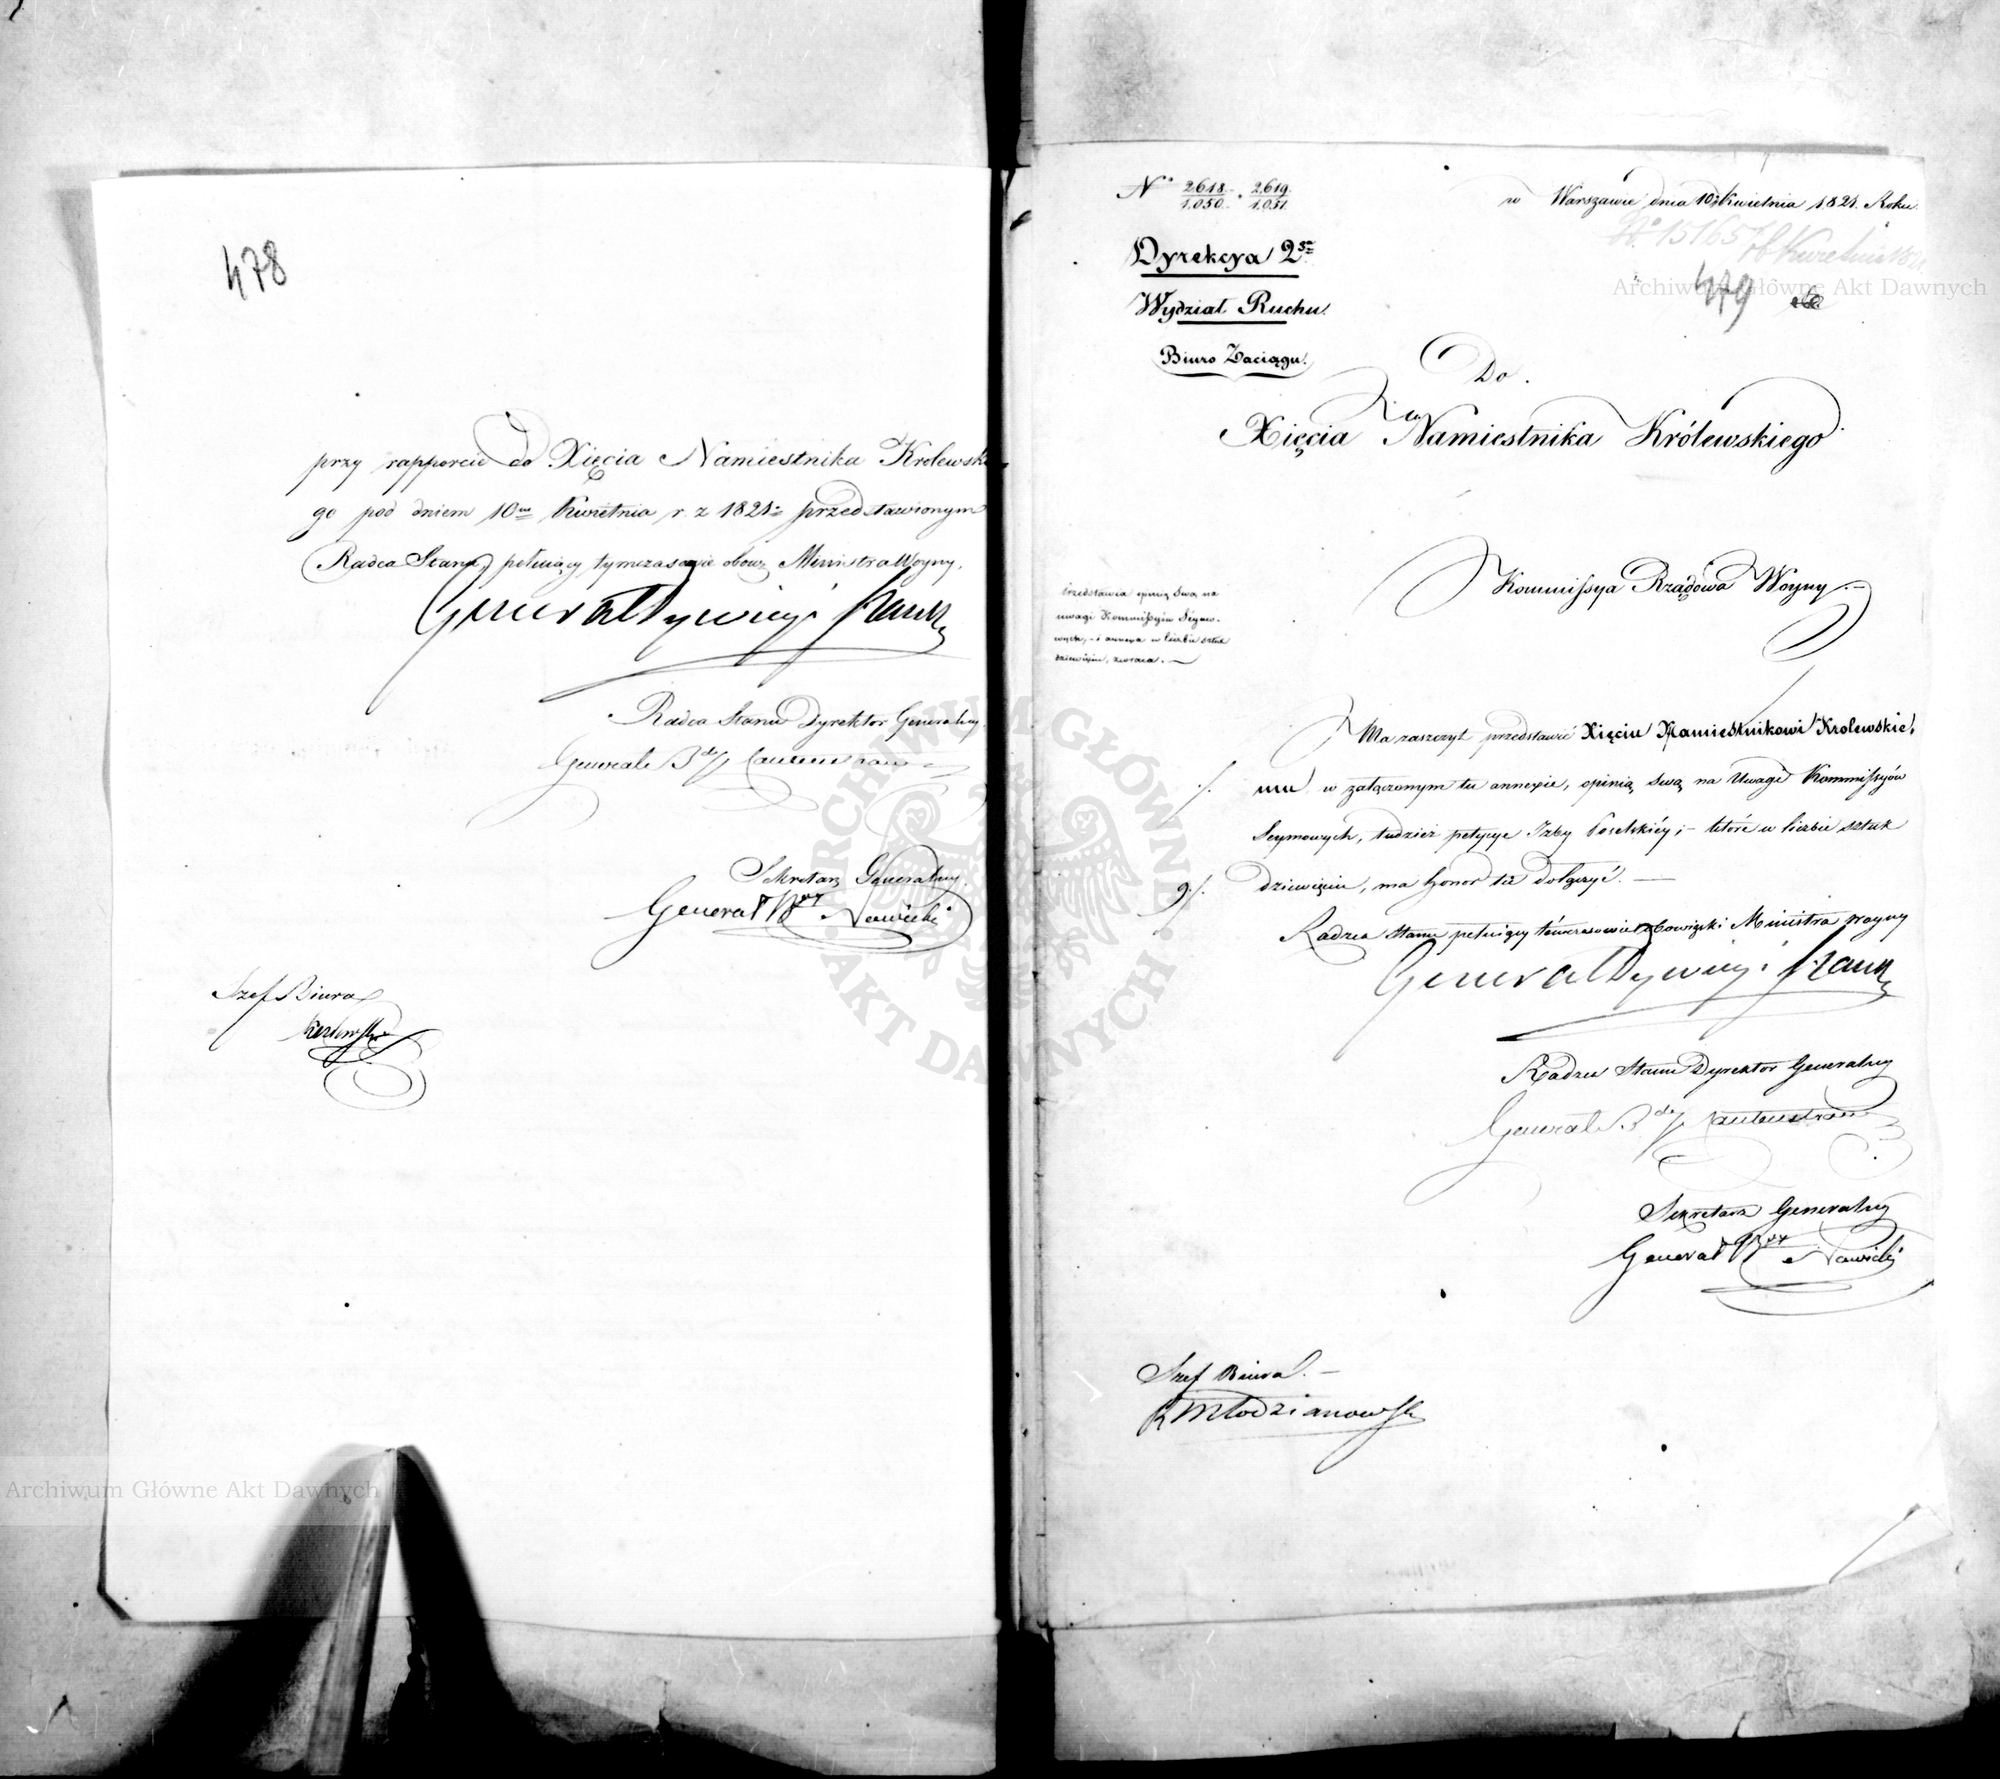 478
przy rapporcie do Xięcia Namiestnika Krolewskie
go pod dniem 10m Kwietnia r. z 1821 przedstawionym
Radca Stanu, pełniący tymczasowie obow: Ministra Woyny.
Generał Dywizyi Hauke
Radca Stanu Dyrektor Generalny
Generał Bdy
Sekretarz Generalny
Generał Nowicki
Szef Biura
N° 2618/1050 . 2619/1051
w Warszawie dnia 10 Kwietnia 1821. Roku
N° 15165
479
Dyrekcya 2ga
Wydział Ruchu.
Biuro Zaciągu.
Do
Xięcia Namiestnika Królewskiego
Kommissya Rządowa Woyny
Przedstawia opinią swą na
uwagi Kommissyiów Seymo-
wych, i annexa w liczbie sztuk
dziewięciu, zwraca.
Ma zaszczyt przedstawić Xięciu Namiestnikowi Krolewskie,
./. mu w załączonym tu annexie, opinią swą na Uwagi Kommissyiów
Seymowych, tudzież petycye Izby Poselskiéy; które w liczbie sztuk
9./. dziewięciu, ma honor tu dołączyć.
Radzca Stanu pełniący tymczasowie obowiązki Ministra Woyny
Generał Dywizyi Hauke
Radzca Stanu Dyrektor Generalny
Generał Bdy
Sekretarz Generalny
Generał Nowicki
Szef Biura.
Młodzianowski
Archiwum Główne Akt Dawnych
Archiwum Główne Akt Dawnych
ARCHIWUM GŁÓWNE AKT DAWNYCH